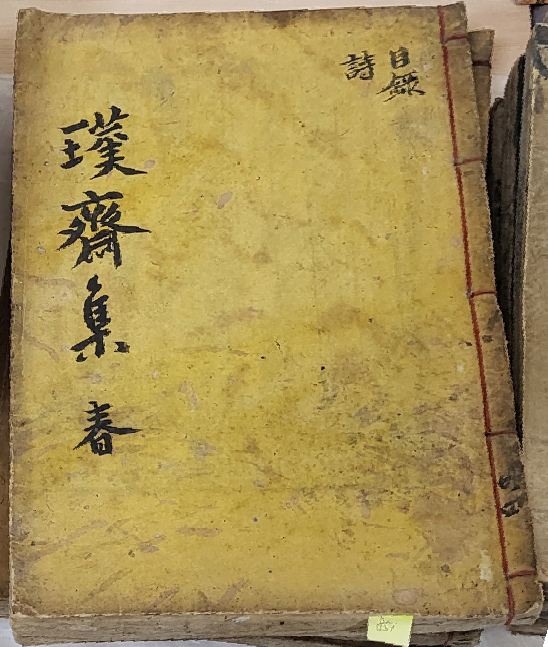 目錄
詩
璞齋集 春